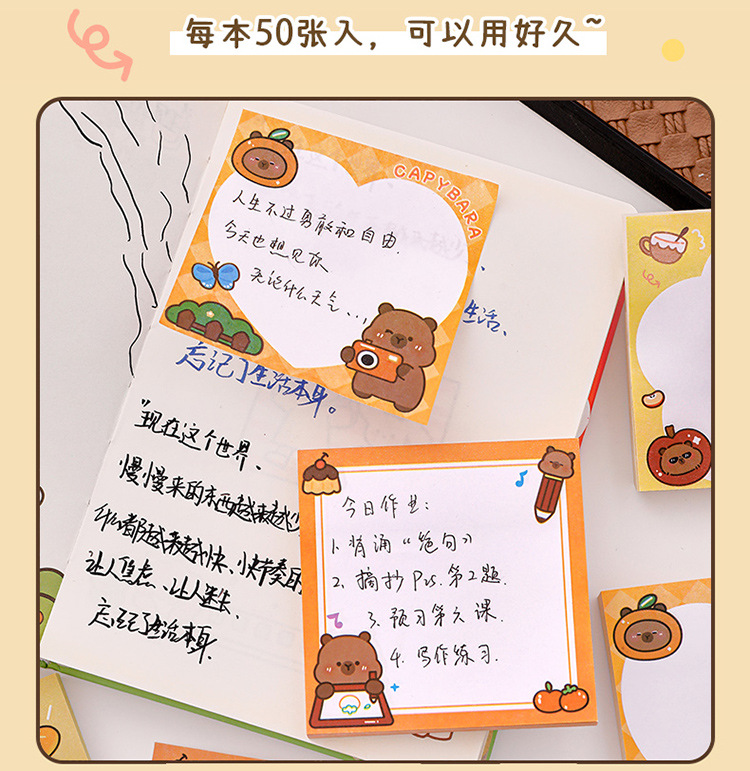 每本50张入，可以用好久~
CAPYBARA
人生不过勇敢和自由.
今天也想见你
无论什么天气...
生活、
忘记了生活本身。
"现在这个世界、
慢慢来的东西越来越少
什么都越来越快、快节奏的
让人焦虑、让人迷失、
忘记了生活本身.
今日作业:
1. 背诵《绝句》
2. 摘抄P25.第2题.
3. 预习第六课.
4. 写作练习.